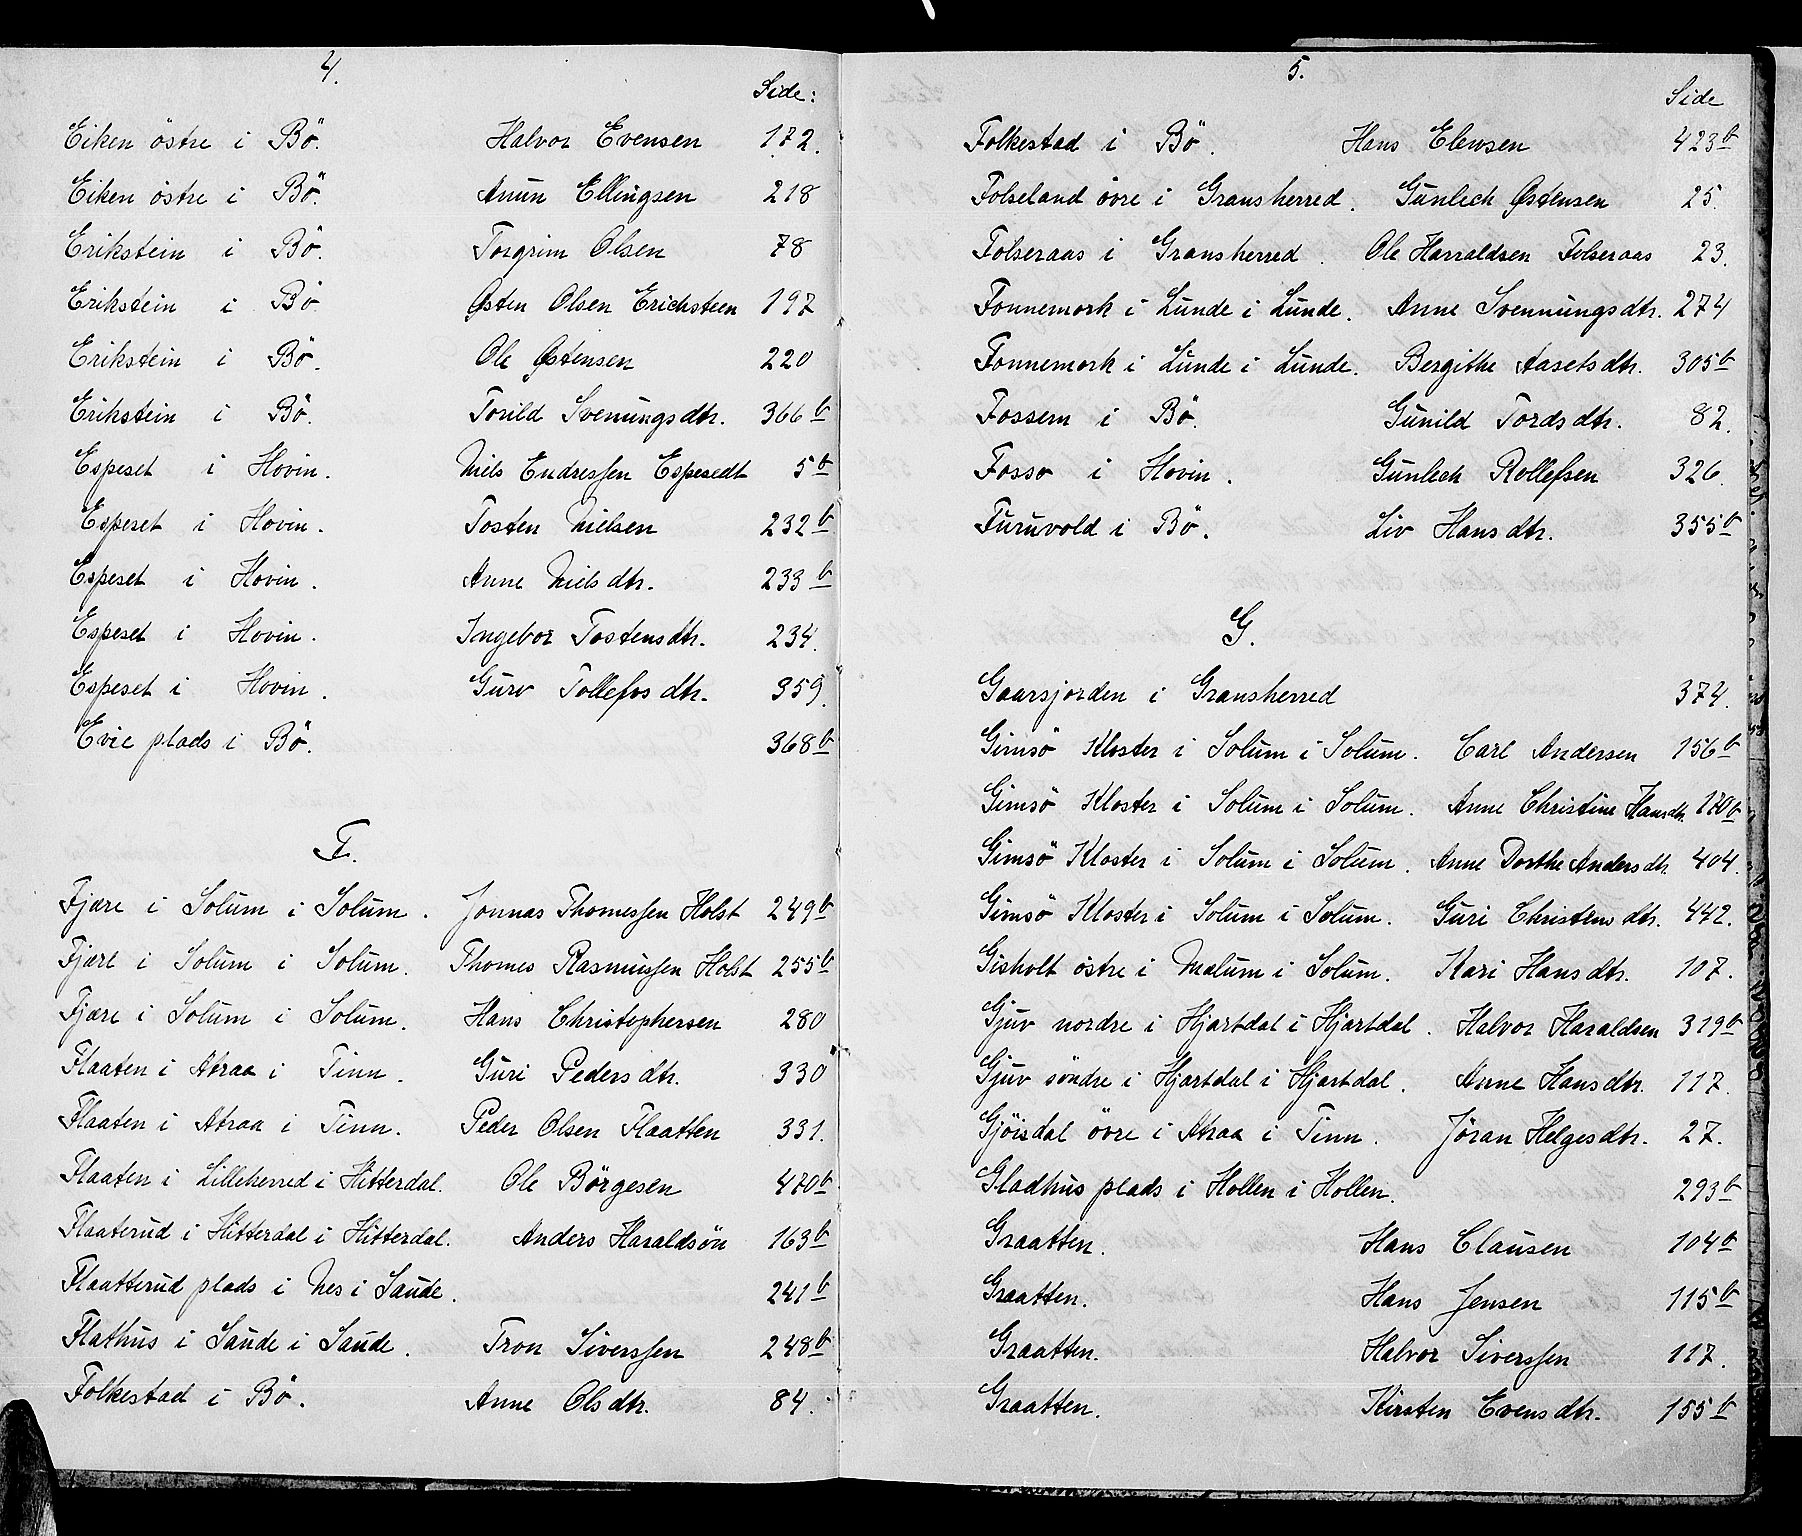 4.
Side:
Eiken östre i Bö. Halvor Evensen 172.
Eiken östre i Bö. Anun Ellingsen 218
Erikstein i Bö. Torgrim Olsen 78
Erikstein i Bö. Østen Olsen Erichsteen 197
Erikstein i Bö. Ole Østensen 220
Erikstein i Bö. Torild Svenungsdtr. 366 b
Espeset i Hovin. Niels Endressen Espesedt 5 b
Espeset i Hovin. Tosten Nielsen 232 b
Espeset i Hovin. Anne Nielsdtr. 233 b
Espeset i Hovin. Ingebor Tostensdtr. 234.
Espeset i Hovin. Gurv Tollefsdtr. 359.
Evie plads i Bö. 368 b
F.
Fjære i Solum i Solum. Jonnas Thomessen Holst 249 b
Fjære i Solum i Solum. Thomes Rasmussen Holst 255 b
Fjære i Solum i Solum. Hans Christophersen 280
Flaaten i Atraa i Tinn. Guri Pedersdtr. 330
Flaaten i Atraa i Tinn. Peder Olsen Flaatten 331.
Flaaten i Lilleherred i Hitterdal. Ole Börgesen 470 b
Flaaterud i Hitterdal i Hitterdal. Anders Haraldsön 163 b
Flaatterud plads i Nes i Saude. 241 b
Flathus i Saude i Saude. Tron Siverssen 248 b
Folkestad i Bö. Anne Olsdtr. 84.
5.
Side
Folkestad i Bö. Hans Elewsen 423 b
Folseland övre i Gransherred. Gunlech Østensen 25.
Folseraas i Gransherred. Ole Harraldsen Folseraas 23.
Fonnemork i Lunde i Lunde. Anne Svennungsdtr. 274
Fonnemork i Lunde i Lunde. Bergithe Aasetsdtr. 305 b
Fossem i Bö. Gunild Tordsdtr. 82.
Fosso i Hovin. Gunlech Rollefsen 326.
Furuvold i Bö. Liv Hansdtr. 355 b
G.
Gaarsjorden i Gransherred 374.
Gimsö Kloster i Solum i Solum. Carl Andersen 156 b
Gimsö Kloster i Solum i Solum. Anne Christine Hansdtr. 170 b
Gimsö Kloster i Solum i Solum. Anne Dorthe Andersdtr. 404.
Gimsö Kloster i Solum i Solum. Guri Christensdtr. 442.
Gisholt östre i Mælum i Solum. Kari Hansdtr. 107.
Gjuv nordre i Hjartdal i Hjartdal. Halvor Haraldsen 319 b
Gjuv söndre i Hjartdal i Hjartdal. Anne Hansdtr. 117.
Gjöisdal övre i Atraa i Tinn. Jöran Helgesdtr. 27.
Gladhus plads i Hollen i Hollen. 293 b
Graatten. Hans Clausen 104 b
Graatten. Hans Jensen 115 b
Graatten. Halvor Siverssen 117.
Graatten. Kirsten Evensdtr. 155 b